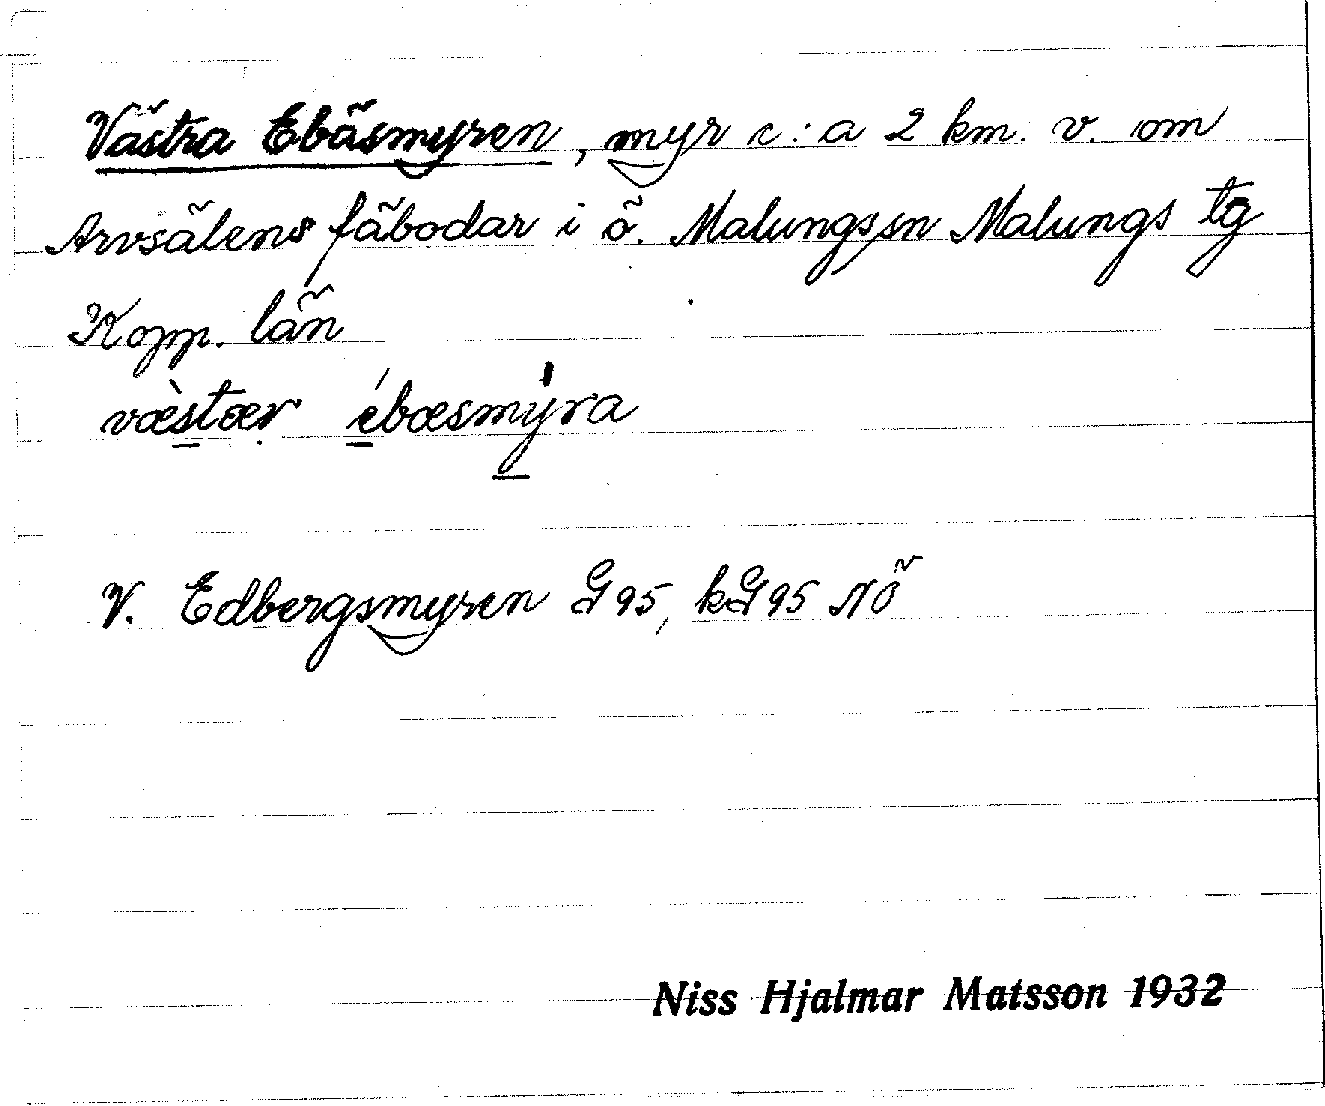 Västra Ebäsmyren, myr c:a 2 km. v. om
Arvsälens fäbodar i ö. Malungs sn Malungs tg
Kopp. län
væstær ébæsmyra
V. Edbergsmyren G95, kG95 NÖ
Niss Hjalmar Matsson 1932